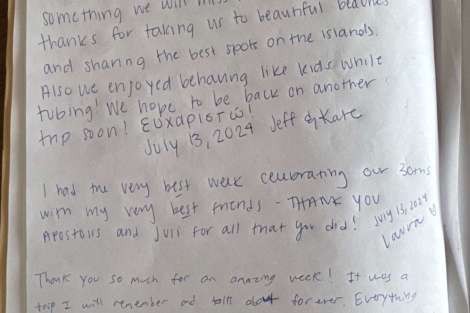 something we will miss beaches
thanks for taking us to beautiful
and sharing the best spots on the islands.
Also we enjoyed behaving like kids while
tubing! We hope to be back on another
trip soon! Ευχαριστώ!
July 13, 2024 Jeff & Kate
I had the very best week celebrating our 30ths
with my very best friends - THANK YOU
Apostolis and Juli for all that you did! July 13, 2024
Laura
Thank you so much for an amazing week! It was a
trip I will remember and talk about for ever. Everything